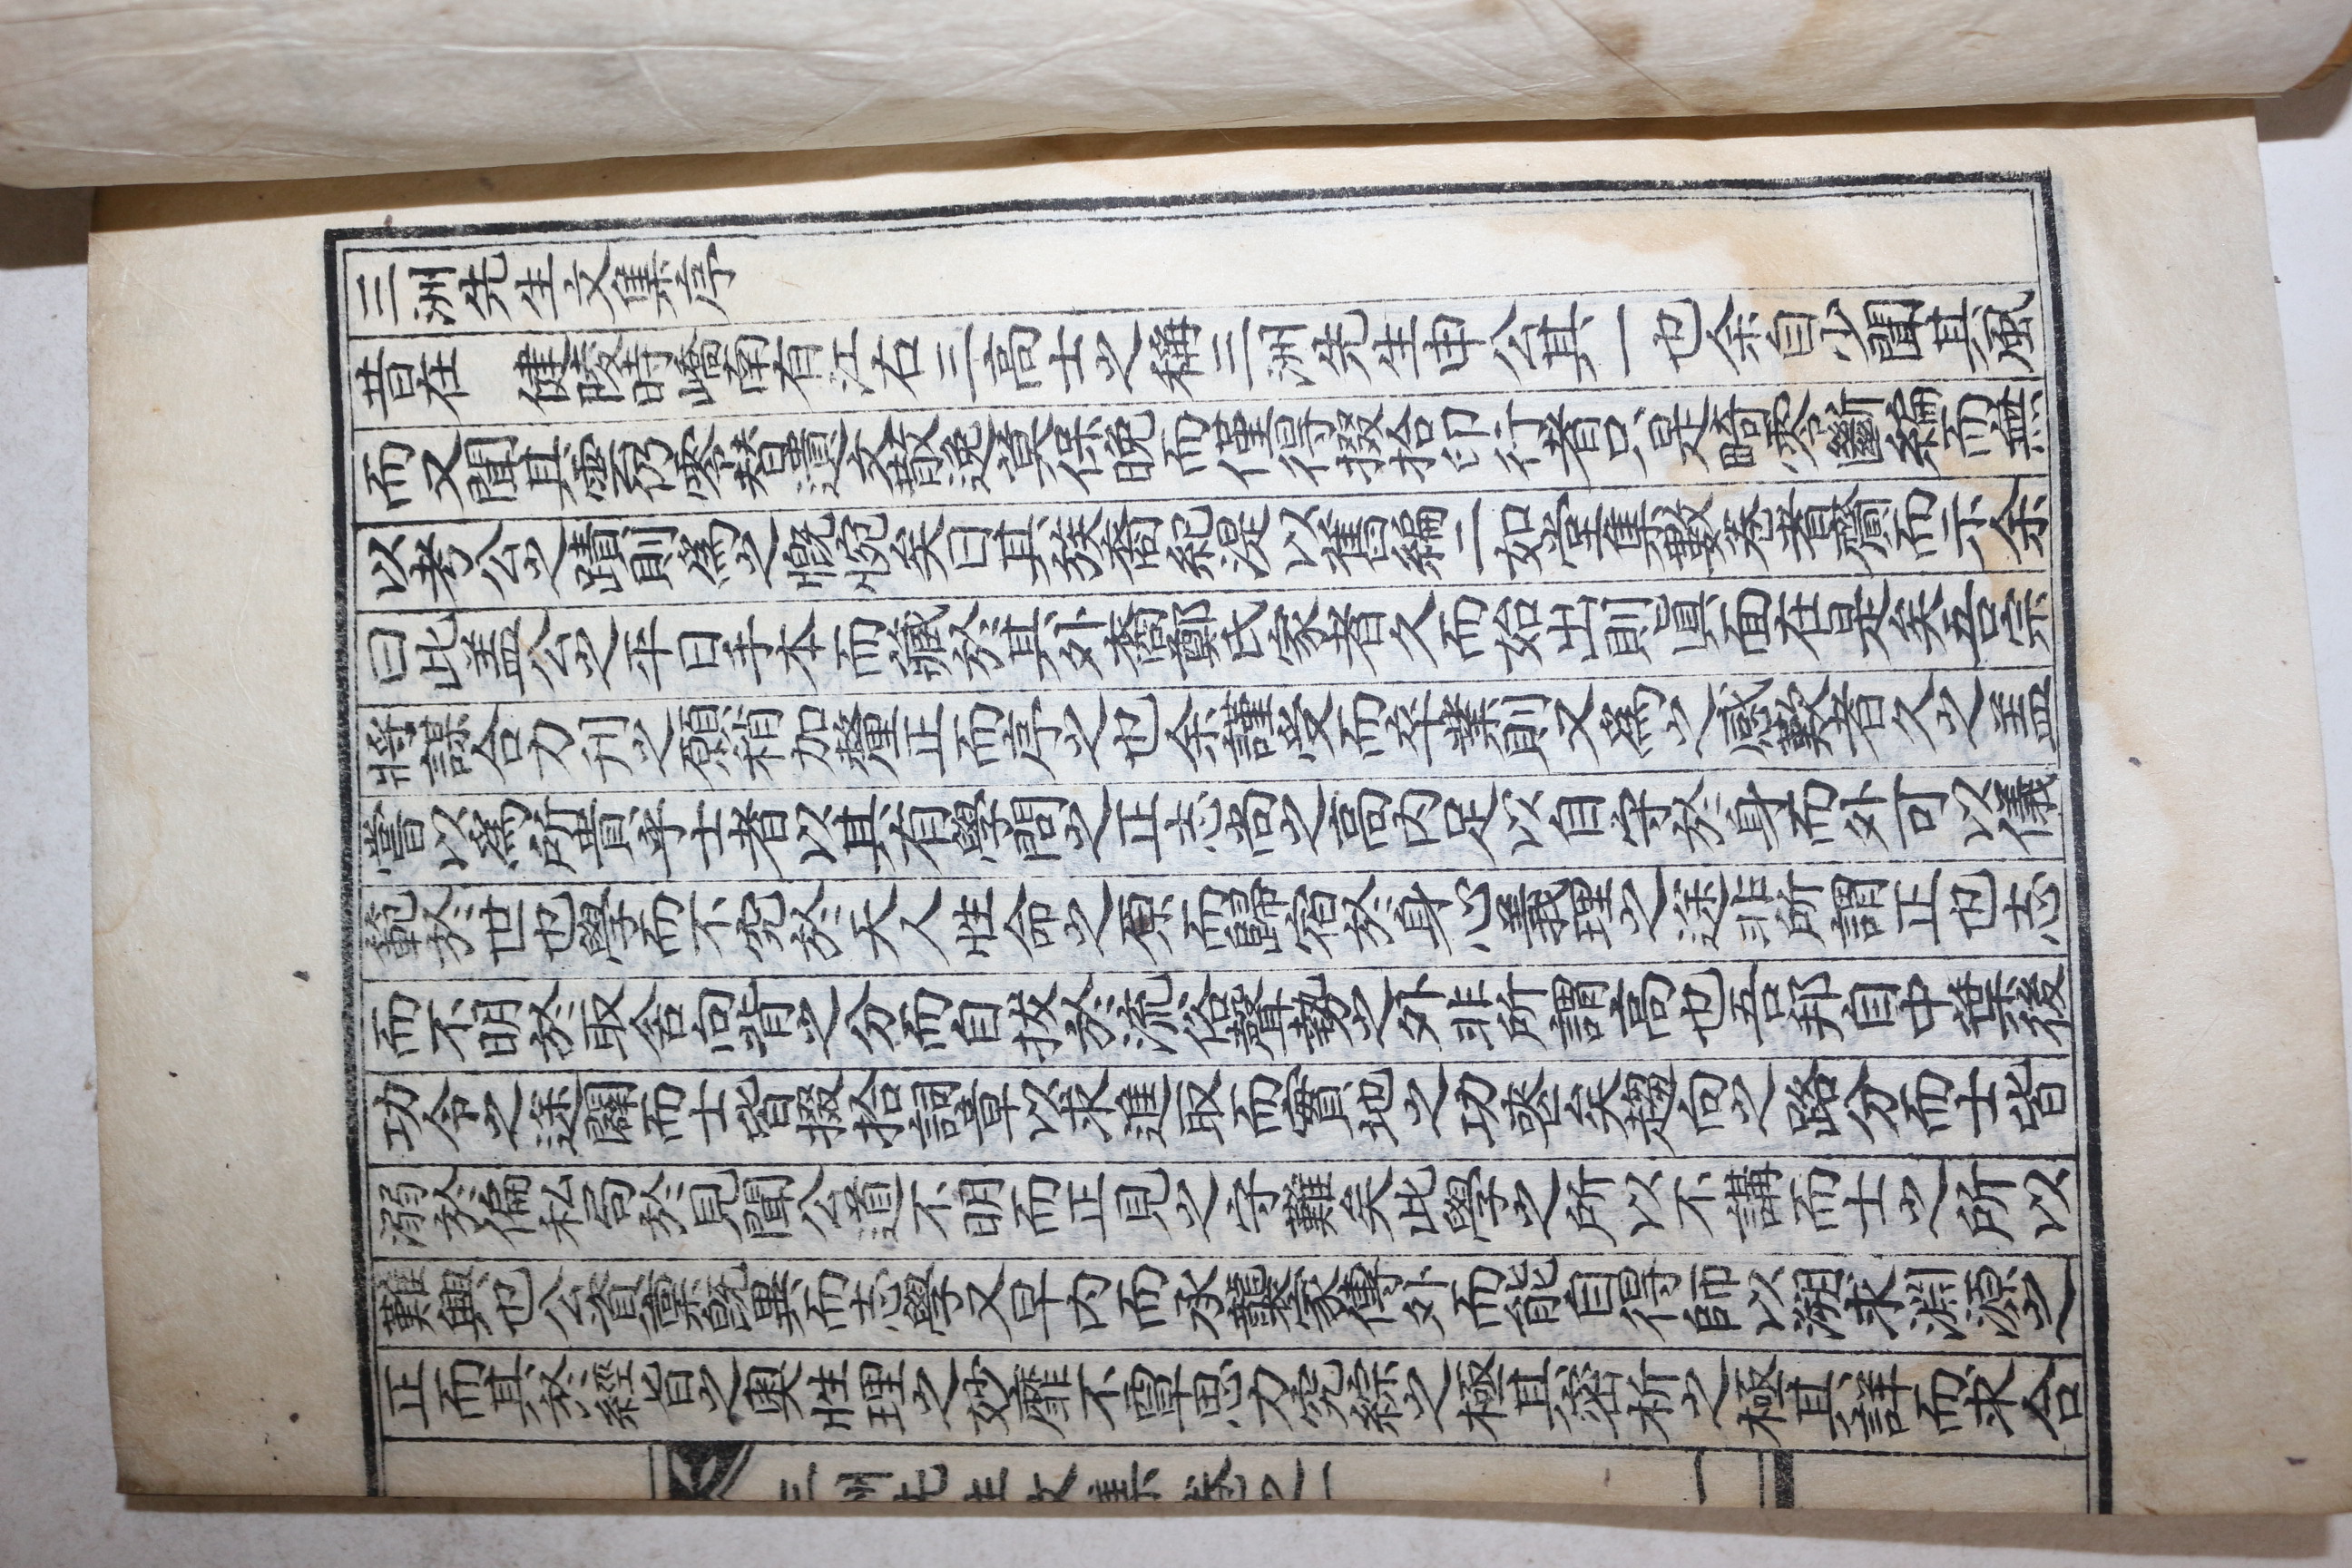 三洲先生文集序
昔在 健陵時嶠南有江右三高士之稱三洲先生申公其一也余自少聞其風
而又聞其雲仍零替遺文散逸莫保晚而僅得掇拾印行者只是畸零斷編而無
以考公之蹟則爲之慨惋矣日其族裔紀湜以舊編二如堂集數卷者齎而示余
曰此盖公之平日手本而藏於其外裔鄭氏家者久而始出則眞面在是矣吾宗
將謀合力刊之願稍加釐正而序之也余謹受而卒業則又爲之感歎者久之盖
嘗以爲所貴乎士者以其有學問之正志尚之高內足以自守於身而外可以儀
範於世也學而不究於天人性命之原而歸宿於身心義理之途非所謂正也志
而不明於取舍向背之分而自拔於流俗聲勢之外非所謂高也吾邦自中葉後
功令之途闢而士皆掇拾詞章以求進取而實地之功喪矣趨向之路分而士皆
溺於偏私局於見聞公道不明而正見之守難矣此學之所以不講而士之所以
難興也公資稟旣異而志學又早內而承襲家傳外而能自得師以溯求淵源之
正而其於經旨之奧性理之妙靡不覃思力究綜之極其密析之極其詳而求合
三洲先生文集 卷之一
一